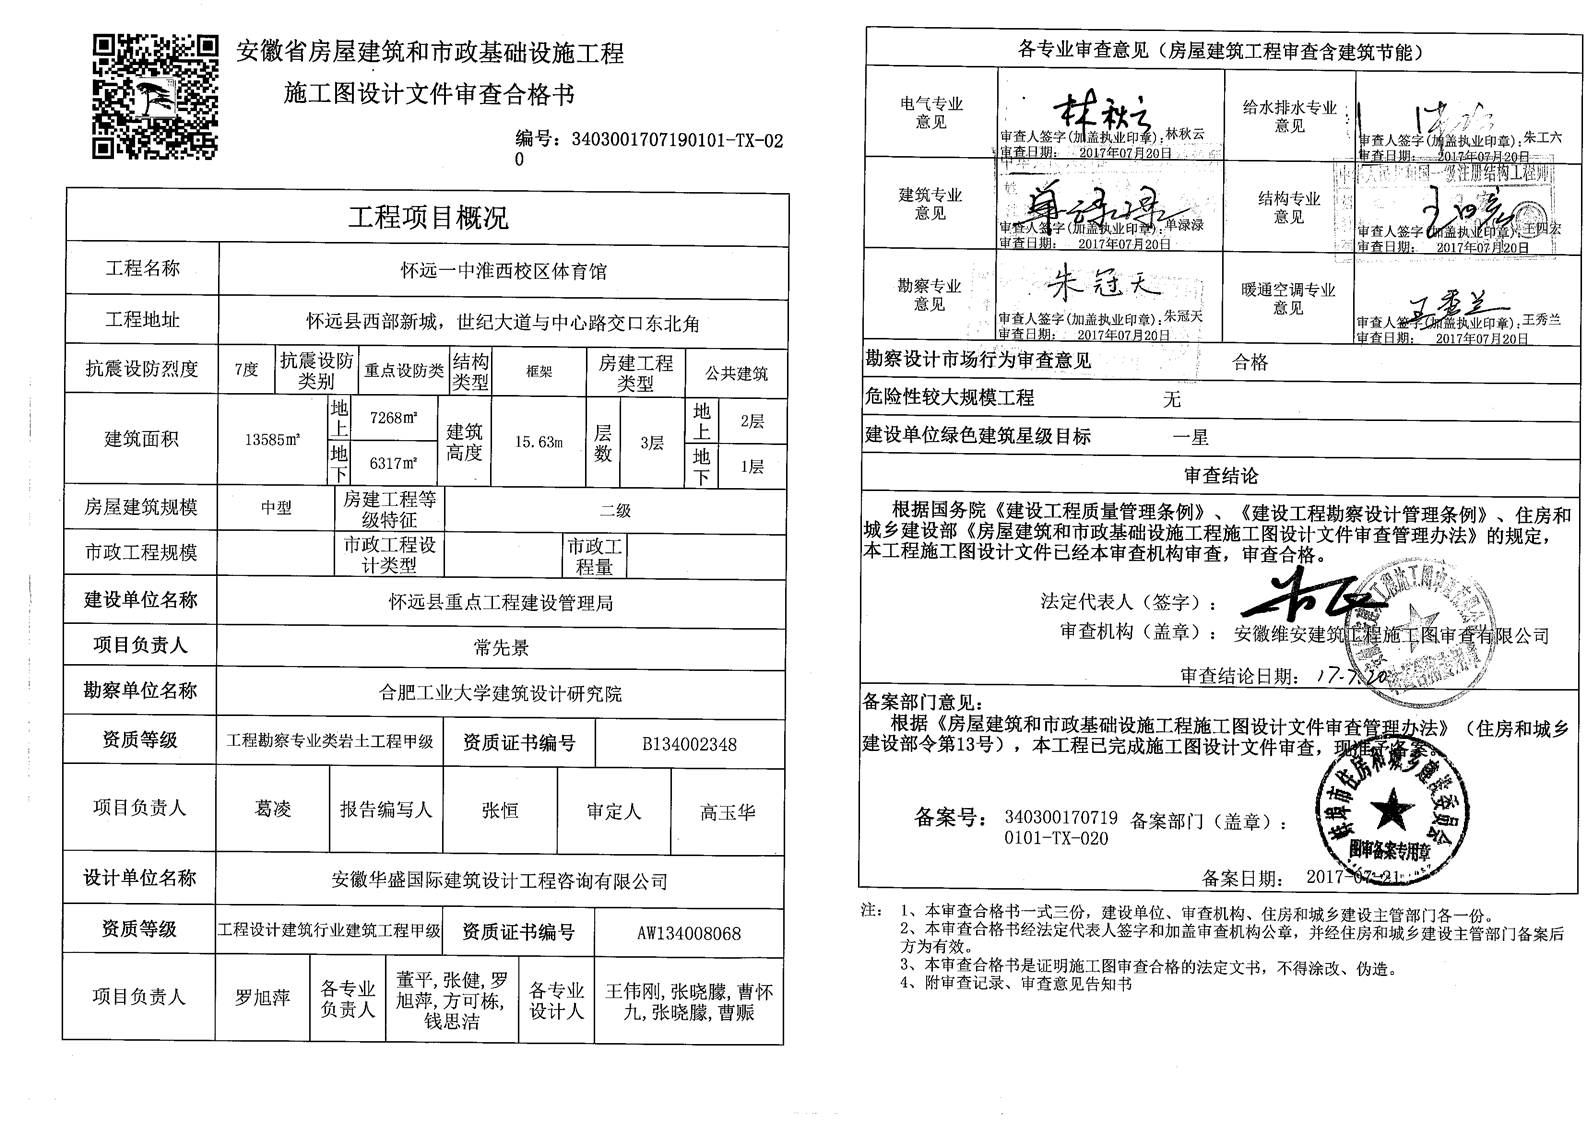 安徽省房屋建筑和市政基础设施工程
施工图设计文件审查合格书
编号: 3403001707190101-TX-02
0
工程项目概况
工程名称 怀远一中淮西校区体育馆
工程地址 怀远县西部新城，世纪大道与中心路交口东北角
抗震设防烈度 7度 抗震设防类别 重点设防类 结构类型 框架 房建工程类型 公共建筑
建筑面积 13585㎡ 地上 7268㎡ 地下 6317㎡ 建筑高度 15.63m 层数 3层 地上 2层 地下 1层
房屋建筑规模 中型 房建工程等级特征 二级
市政工程规模 市政工程设计类型 市政工程量
建设单位名称 怀远县重点工程建设管理局
项目负责人 常先景
勘察单位名称 合肥工业大学建筑设计研究院
资质等级 工程勘察专业类岩土工程甲级 资质证书编号 B134002348
项目负责人 葛凌 报告编写人 张恒 审定人 高玉华
设计单位名称 安徽华盛国际建筑设计工程咨询有限公司
资质等级 工程设计建筑行业建筑工程甲级 资质证书编号 AW134008068
项目负责人 罗旭萍 各专业负责人 董平,张健,罗旭萍,方可栋,钱思洁 各专业设计人 王伟刚,张晓朦,曹怀九,张晓朦,曹赈
各专业审查意见（房屋建筑工程审查含建筑节能）
电气专业意见 林秋云 审查人签字(加盖执业印章): 林秋云
审查日期: 2017年07月20日
给水排水专业意见 审查人签字(加盖执业印章): 朱工六
审查日期: 2017年07月20日
建筑专业意见 单渌渌 审查人签字(加盖执业印章): 单渌渌
审查日期: 2017年07月20日
结构专业意见 中华人民共和国一级注册结构工程师 王四宏 审查人签字(加盖执业印章): 王四宏
审查日期: 2017年07月20日
勘察专业意见 朱冠天 审查人签字(加盖执业印章): 朱冠天
审查日期: 2017年07月20日
暖通空调专业意见 王秀兰 审查人签字(加盖执业印章): 王秀兰
审查日期: 2017年07月20日
勘察设计市场行为审查意见 合格
危险性较大规模工程 无
建设单位绿色建筑星级目标 一星
审查结论
根据国务院《建设工程质量管理条例》、《建设工程勘察设计管理条例》、住房和
城乡建设部《房屋建筑和市政基础设施工程施工图设计文件审查管理办法》的规定，
本工程施工图设计文件已经本审查机构审查，审查合格。
法定代表人（签字）:
审查机构（盖章）: 安徽维安建筑工程施工图审查有限公司
审查结论日期: 17-7.20
备案部门意见:
根据《房屋建筑和市政基础设施工程施工图设计文件审查管理办法》（住房和城乡
建设部令第13号），本工程已完成施工图设计文件审查，现准予备案。
备案号: 340300170719 备案部门（盖章）:
0101-TX-020
蚌埠市住房和城乡建设委员会
图审备案专用章
备案日期: 2017-07-21
注: 1、本审查合格书一式三份，建设单位、审查机构、住房和城乡建设主管部门各一份。
2、本审查合格书经法定代表人签字和加盖审查机构公章，并经住房和城乡建设主管部门备案后
方为有效。
3、本审查合格书是证明施工图审查合格的法定文书，不得涂改、伪造。
4、附审查记录、审查意见告知书